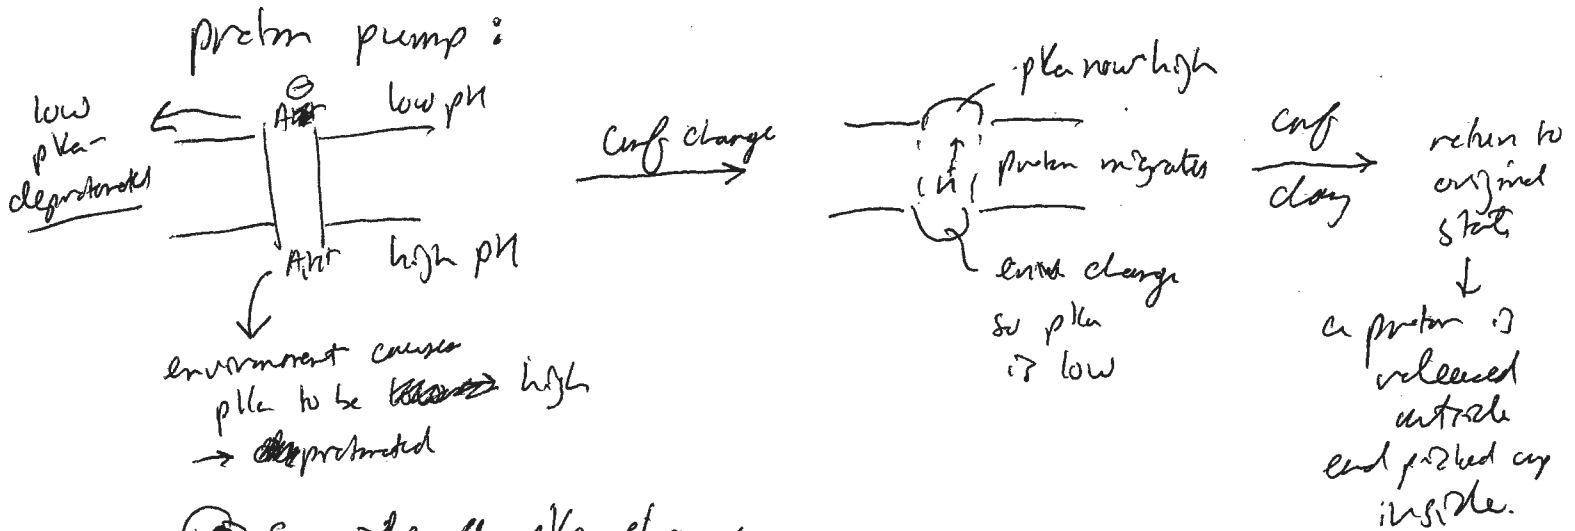 proton pump:
low
pKa -
deprotonates
⊖
low pH
high pH
environment causes
pKa to be high
→ protonated
conf change
pKa now high
proton migrates
H
change
so pKa
is low
conf
return to
original
state
↓
a proton is
released
outside
and picked up
inside.
pKa